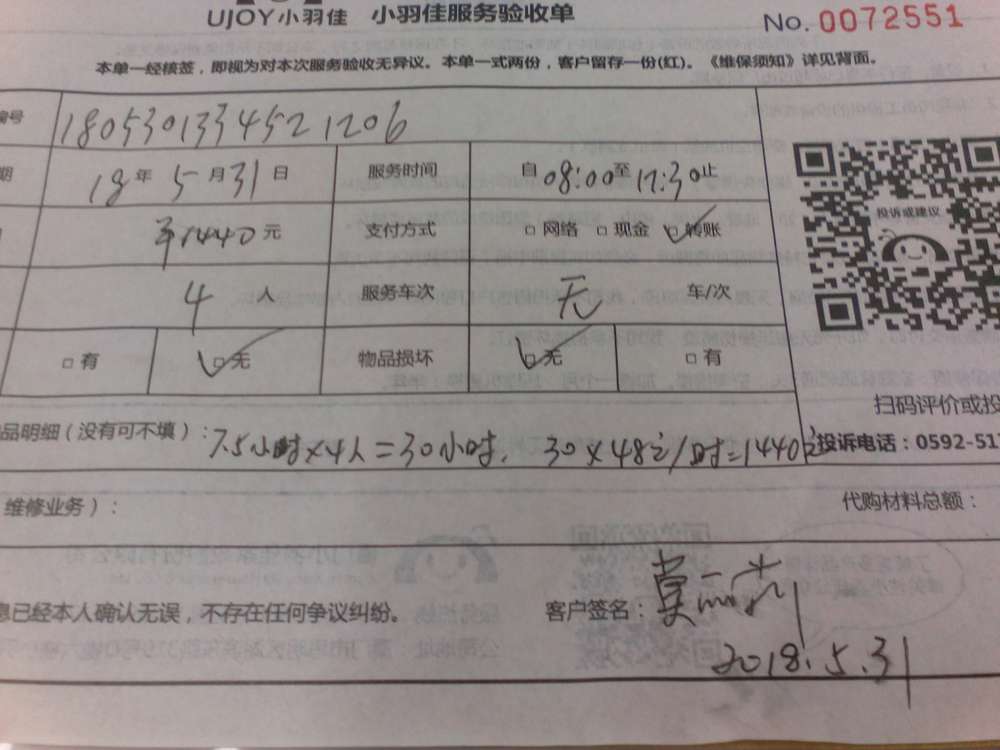 UJOY小羽佳 小羽佳服务验收单
No. 0072551
本单一经核签，即视为对本次服务验收无异议。本单一式两份，客户留存一份(红)。《维保须知》详见背面。
编号 1805301334521206
期 18年5月31日 服务时间 自08:00至17:30止
1440元 支付方式 □网络 □现金 □转账
4人 服务车次 无 车/次
□有 □无 物品损坏 □无 □有
投诉或建议
扫码评价或投
品明细（没有可不填）：7.5小时×4人=30小时. 30×48元/时=1440元
投诉电话：0592-51
维修业务）： 代购材料总额：
息已经本人确认无误，不存在任何争议纠纷。 客户签名：
2018.5.31